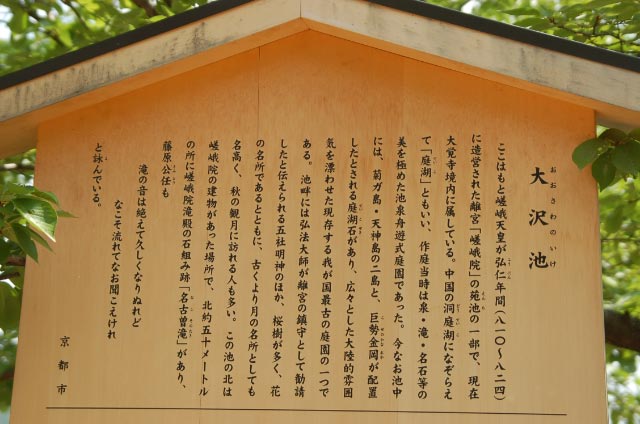 大沢池
おおさわのいけ
ここはもと嵯峨天皇が弘仁年間（八一〇～八二四）
に造営された離宮「嵯峨院」の苑池の一部で、現在
大覚寺境内に属している。中国の洞庭湖になぞらえ
て「庭湖」ともいい、作庭当時は泉・滝・名石等の
美を極めた池泉舟遊式庭園であった。今なお池中
には、菊ガ島・天神島の二島と、巨勢金岡が配置
したとされる庭湖石があり、広々とした大陸的雰囲
気を漂わせた現存する我が国最古の庭園の一つで
ある。池畔には弘法大師が離宮の鎮守として勧請
したと伝えられる五社明神のほか、桜樹が多く、花
の名所であるとともに、古くより月の名所としても
名高く、秋の観月に訪れる人も多い。この池の北は
嵯峨院の建物があった場所で、北約五十メートル
の所に嵯峨院滝殿の石組み跡「名古曽滝」があり、
藤原公任も
滝の音は絶えて久しくなりぬれど
なこそ流れてなお聞こえけれ
と詠んでいる。
京都市